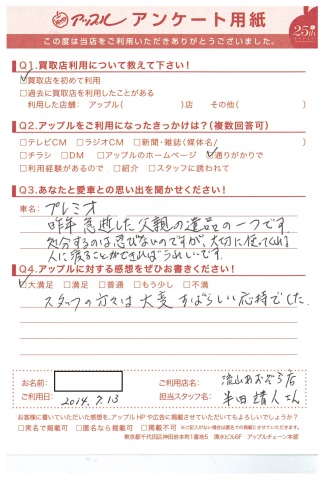 アップル アンケート用紙
25th
この度は当店をご利用いただきありがとうございました。
Q1.買取店利用について教えて下さい!
☑買取店を初めて利用
□過去に買取店を利用したことがある
利用した店舗: アップル( )店 その他( )
Q2.アップルをご利用になったきっかけは?(複数回答可)
□テレビCM □ラジオCM □新聞・雑誌(媒体名/ )
□チラシ □DM □アップルのホームページ ☑通りがかりで
□利用経験があるので □紹介 □スタッフに誘われて
Q3.あなたと愛車との思い出を聞かせください!
車名: プレミオ
昨年急逝した父親の遺品の一つです。
処分するのは忍びないのですが、大切に使ってくれる
人に渡ることができればうれしいです。
Q4.アップルに対する感想をぜひお書きください!
☑大満足 □満足 □普通 □もう少し □不満
スタッフの方々は大変すばらしい応対でした。
お名前:
ご利用店名: 流山おおぞら店
ご利用日: 2014.7.13
担当スタッフ名: 半田靖人さん
お客様に書いていただいた感想を、アップルHPや広告に掲載させていただいてもよろしいでしょうか?
□実名で掲載可 □匿名なら掲載可 □掲載不可 ※ご記入がない場合は匿名での掲載とさせていただきます。
東京都千代田区神田鍛冶町1番地5 清水ビル6F アップルチェーン本部